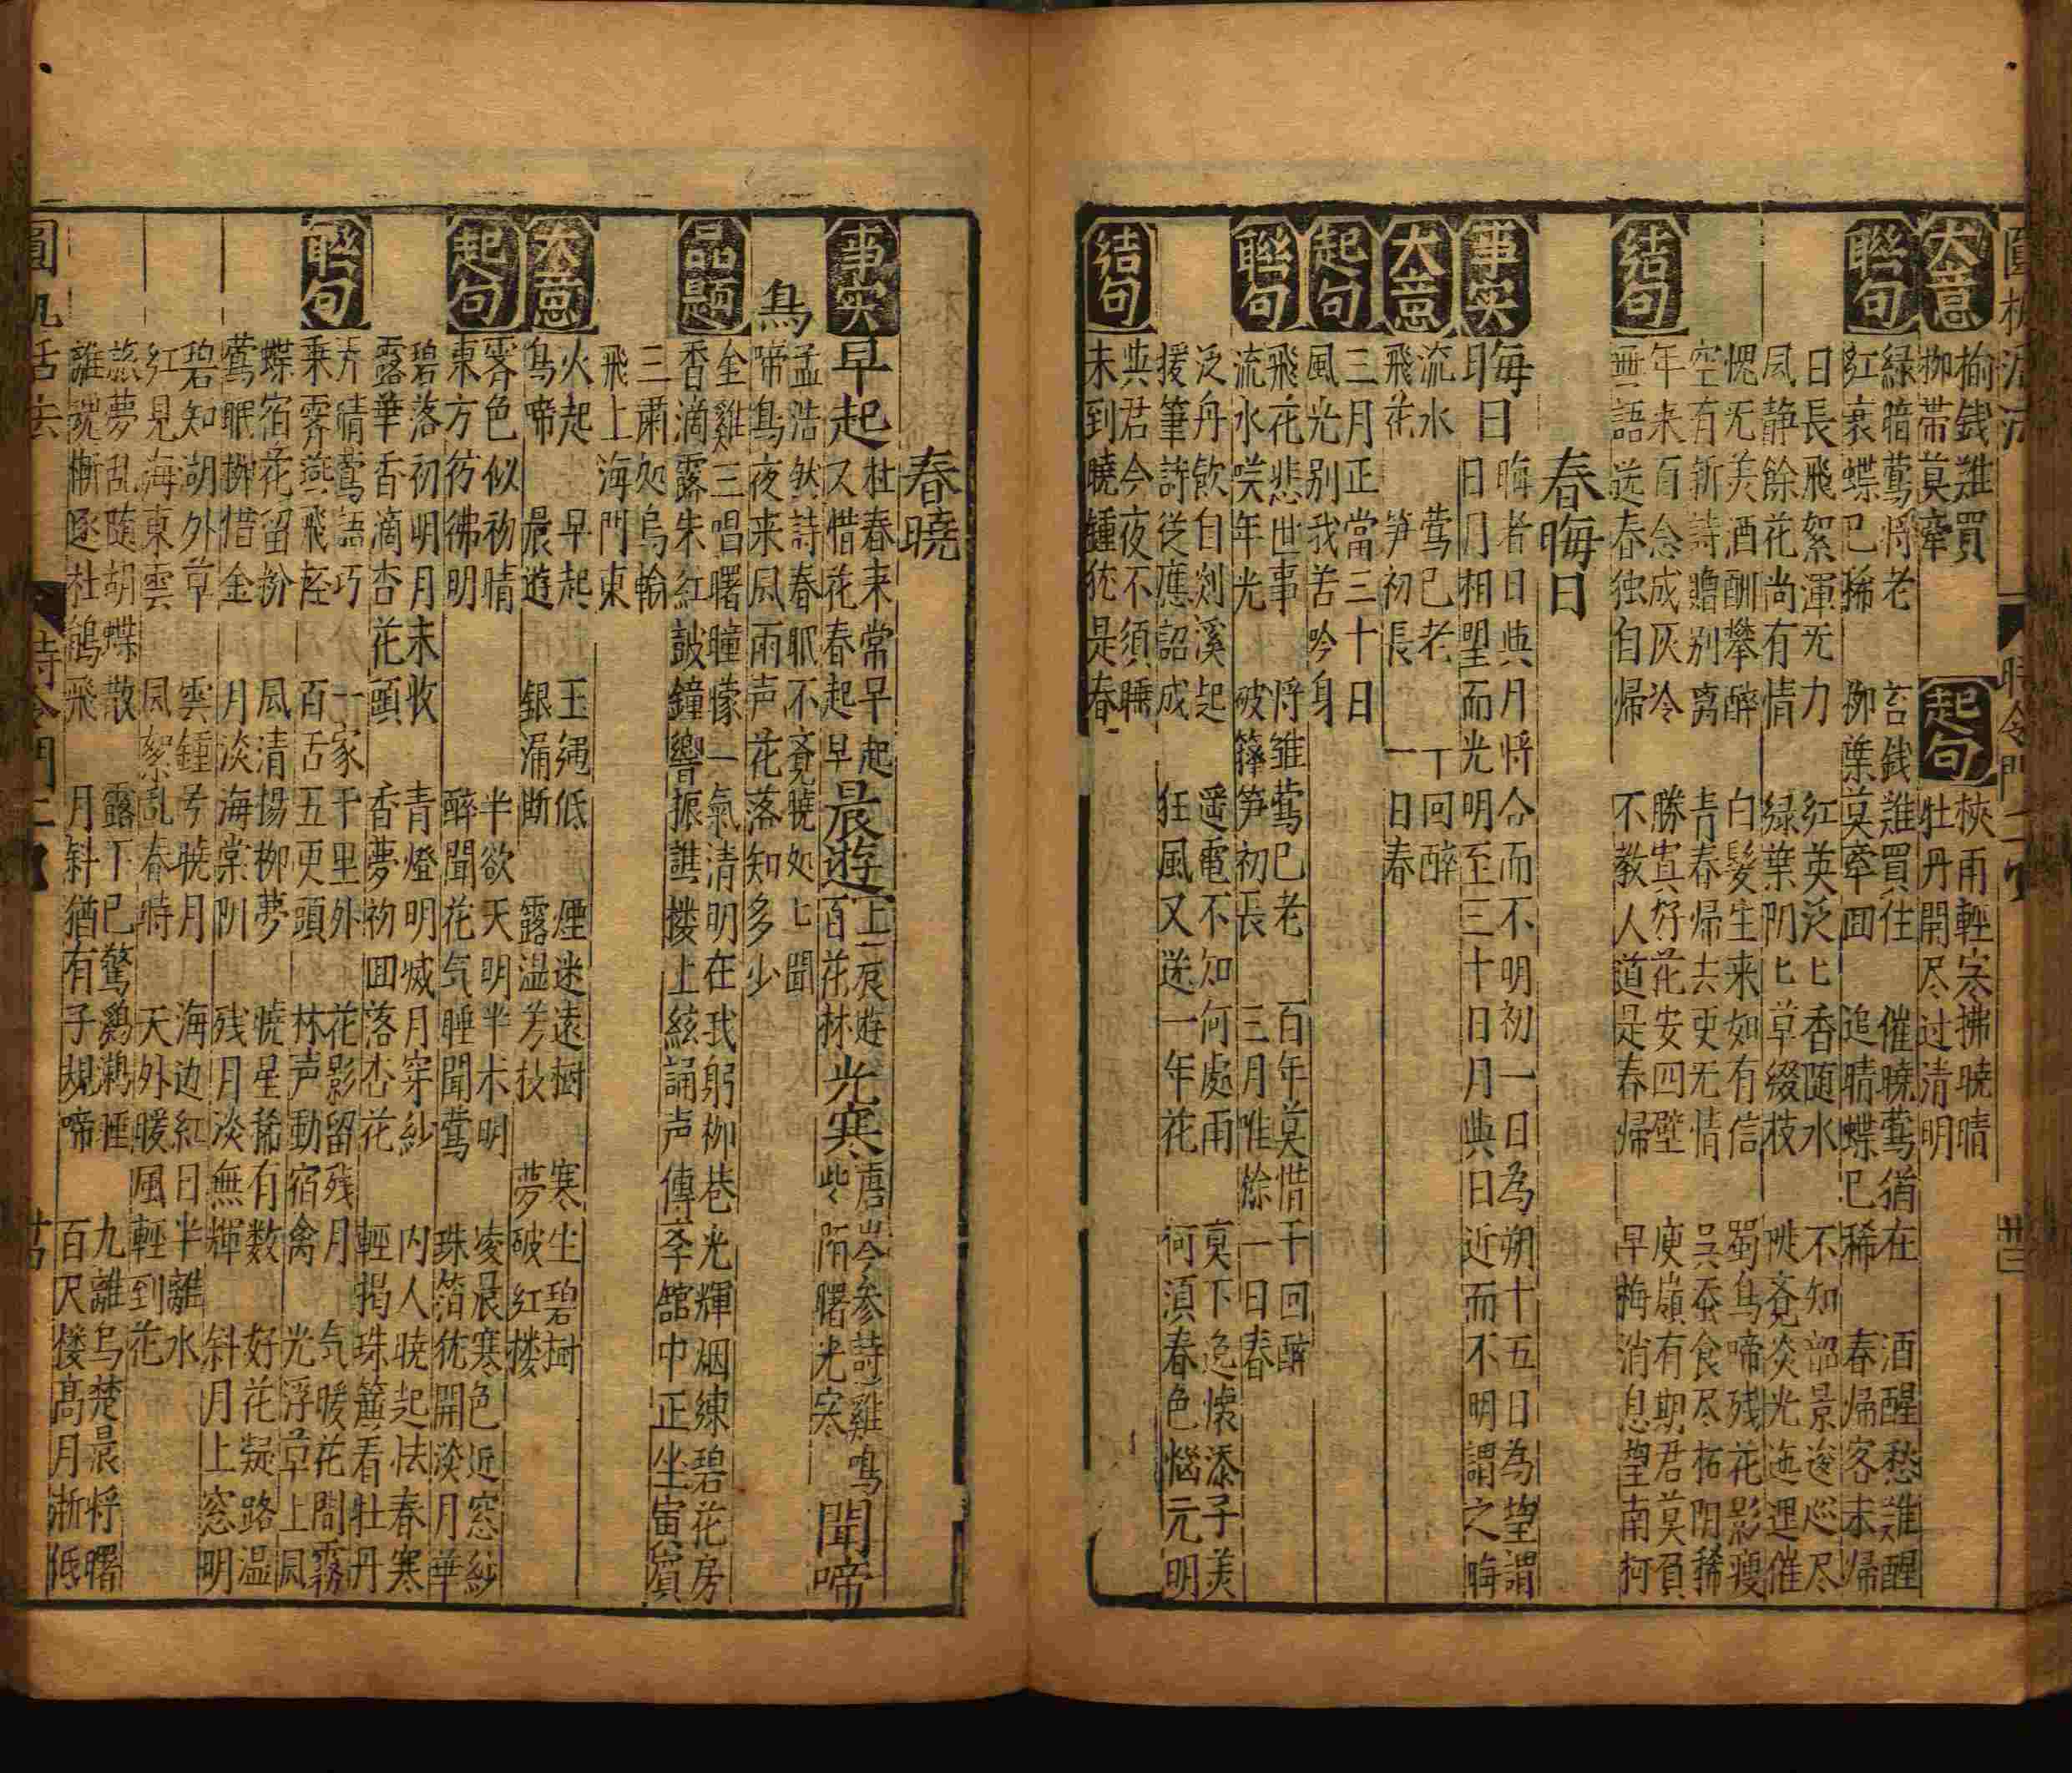 大意
榆錢難買
柳帶莫牽
起句
梜雨輕寒拂曉晴
牡丹開尽过清明
聮句
緑暗鶯将老
紅衰蝶已稀
苔錢難買住
柳葉莫牽囬
催曉鶯猶在
追晴蝶已稀
酒醒愁難醒
春帰客未帰
日長飛絮渾无力
凮静餘花尚有情
紅英泛匕香随水
绿葉阴匕草綴枝
不知韶景逡巡尽
㤀覔炎光迤逗催
愧无美酒酬攀醉
空有新詩贈别离
白髮生来如有信
青春帰去更无情
蜀鳥啼残花影瘦
吳蚕食尽柘阴稀
结句
年来百念成灰冷
無語送春独自帰
勝寘好花安四壁
不教人道是春帰
庾嶺有期君莫負
早梅消息望南柯
春晦日
事实
晦日
晦者日與月将合而不明初一日為朔十五日為望謂
日月相望而光明至三十日月與日近而不明謂之晦
大意
流水
飛花
鶯已老
笋初長
一日春
起句
三月正當三十日
風光别我苦吟身
聮句
飛花悲世事
流水㗛年光
将雛鶯已老
破籜笋初長
百年莫惜千回醉
三月惟餘一日春
结句
泛舟飲白剡溪起
援筆詩從應詔成
遥電不知何處雨
狂風又送一年花
莫下逸懷添子羙
何湏春色惱元明
與君今夜不須睡
未到曉鍾犹是春
春曉
事实
早起
杜春来常早起
又惜花春起早
晨遊
上辰遊
百花林
光寒
唐岑参詩雞鳴
紫陌曙光寒
聞啼
鳥
孟浩然詩春眠不覔曉処匕聞
啼鳥夜来凮雨声花落知多少
品題
金雞三唱曙曈曚一氣清明在我躬柳巷光輝烟練碧花房
香滴露朱紅皷鐘響振譙楼上絃誦声傳斈舘中正坐寅賔
三肅処烏輪
飛上海門東
大意
火起
烏啼
早起
晨遊
玉䋲低
銀漏断
煙迷遠樹
露温芳枝
寒生碧樹
夢破红楼
起句
霽色似初晴
東方彷彿明
半欲天明半未明
醉聞花气睡聞鶯
凌晨寒色近窓紗
珠箔犹開淡月華
碧落初明月未收
露華香滴杏花頭
青燈明烕月穿紗
香夢初囬落杏花
内人曉起怯春寒
輕揭珠簾看牡丹
聮句
弄晴鶯語巧
乗霽燕飛輕
一家千里外
百舌五更頭
花影留残月
林声動宿禽
气暖花間霧
光浮草上凮
蝶宿花留粉
鶯眠柳借金
凮清揚柳夢
月淡海棠阴
曉星稀有数
残月淡無輝
好花凝路温
斜月上窓明
碧知胡外草
红見海東雲
雲鍾兮曉月
凮絮乱春時
海边紅日半離水
天外暖風輕到花
燕夢乱随胡蝶散
離魂慚逐杜鵑飛
露下已驚鸂鶒睡
月斜猶有子規啼
九離烏楚晨将曙
百尺楼髙月漸低